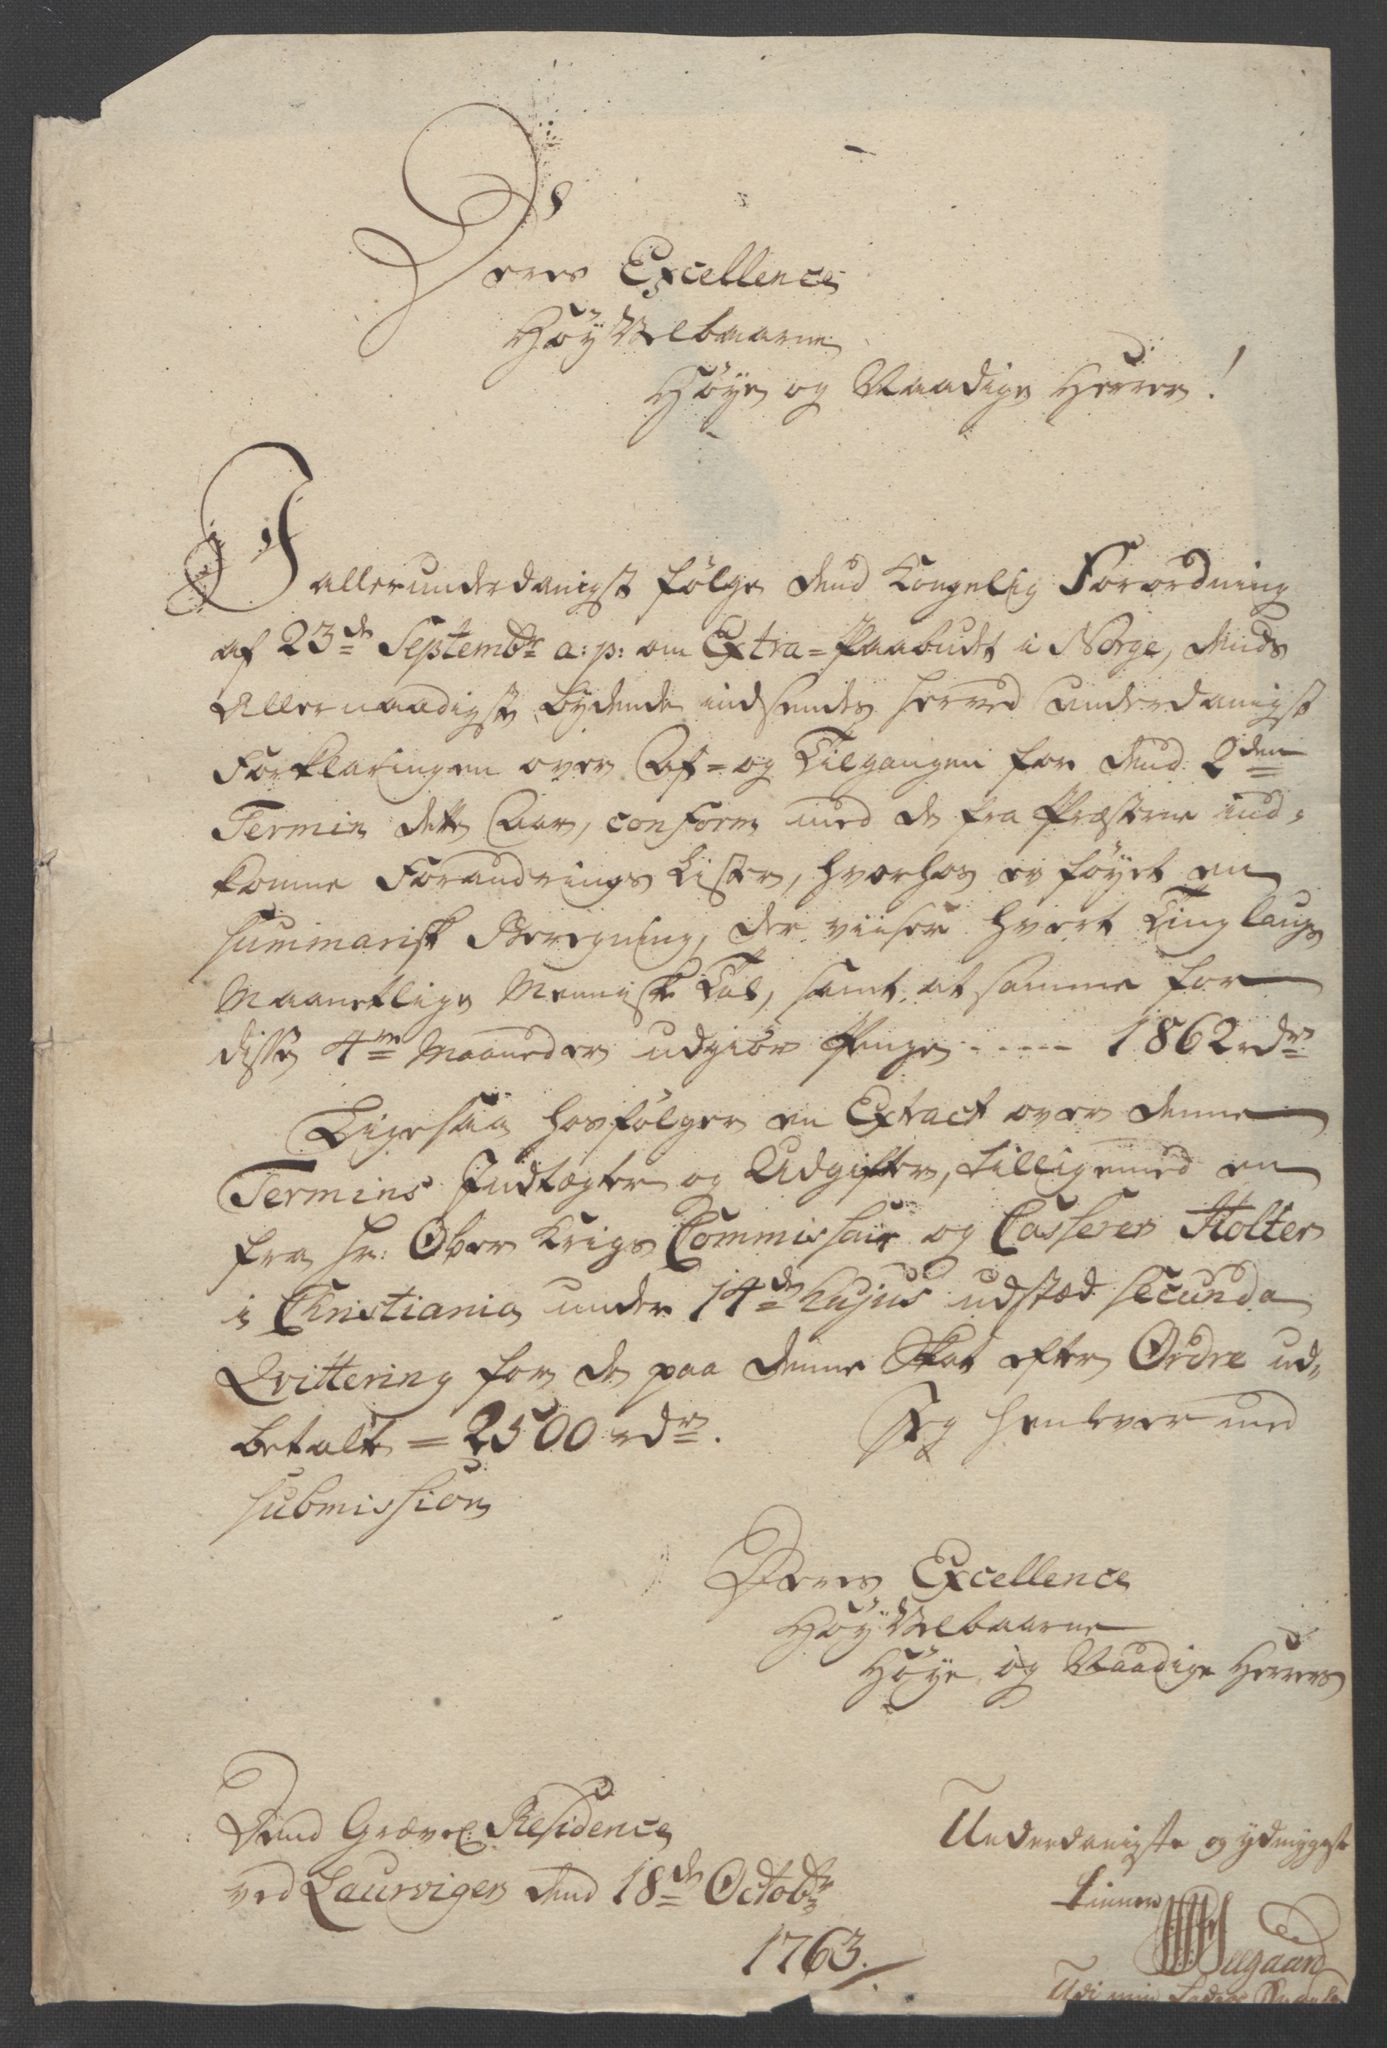 Deres Excellence
HöyVelbaarne
Höye og Naadige Herrer!
I allerunderdanigst følge dend Kongelig Forordning
af 23de Septembr a: p: om Extra-Paabudet i Norge, dends
Allernaadigste bydende indsendes herved underdanigst
Forklaringen over Af- og Tilgangen for dend 2den
Termin dette Aar, conform med de fra Præsterne ind-
komne Forandrings Lister, hvorhos er föyet en
summarisk Beregning, der viiser hvert Tinglaugs
Maanetlige Menniske Tal, samt at samme for
disse 4re Maaneder udgiør Penge ----- 1862 rdr
Ligesaa hosfølger en Extract over denne
Termins Indtægter og Udgifter, tilligemed en
fra Hr: Ober Krigs Commissair og Casserer Holter
i Christiania under 14de hujus udstæd secunda
Qvittering for de paa denne Skat efter Ordre ud-
betalte = 2500 rdr. Jeg henlever med
submission
Deres Excellence
HöyVelbaarne
Höye og Naadige Herrers
Dend Grævel: Residence
ved Laurvigen dend 18de Octobr
1763.
Underdanigste og ydmygeste
tienner
Seegaard
Udi min Faders